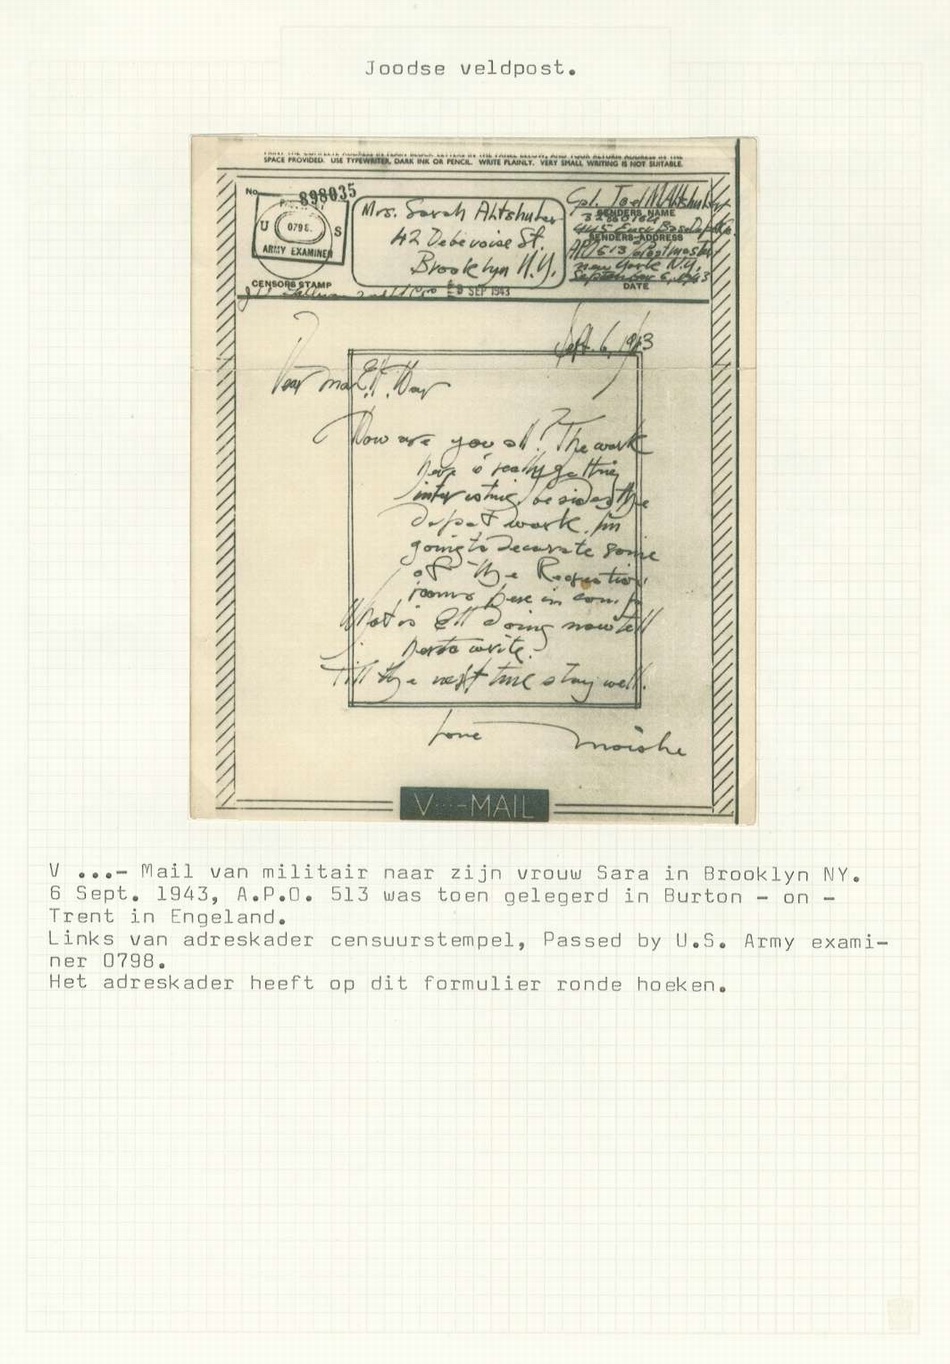 Joodse veldpost.
SPACE PROVIDED. USE TYPEWRITER, DARK INK OR PENCIL. WRITE PLAINLY. VERY SMALL WRITING IS NOT SUITABLE.
No.
898035
U S
0798.
ARMY EXAMINER
CENSORS STAMP
Mrs. Sarah Altshuler
42 Debevoise St.
Brooklyn N.Y.
SEP 1943
Cpl.
SENDERS NAME
SENDERS ADDRESS
New York N.Y.
September 6, 1943
DATE
Sept. 6, 1943
Dear Ma
How are you all? The work
here is really getting
interesting, besides the
depot work. I'm
going to decorate some
of the
rooms here in camp
What is Ell doing now tell
her to write.
Till the next time stay well.
Love
Moishe
V...-MAIL
V ...- Mail van militair naar zijn vrouw Sara in Brooklyn NY.
6 Sept. 1943, A.P.O. 513 was toen gelegerd in Burton - on -
Trent in Engeland.
Links van adreskader censuurstempel, Passed by U.S. Army exami-
ner 0798.
Het adreskader heeft op dit formulier ronde hoeken.